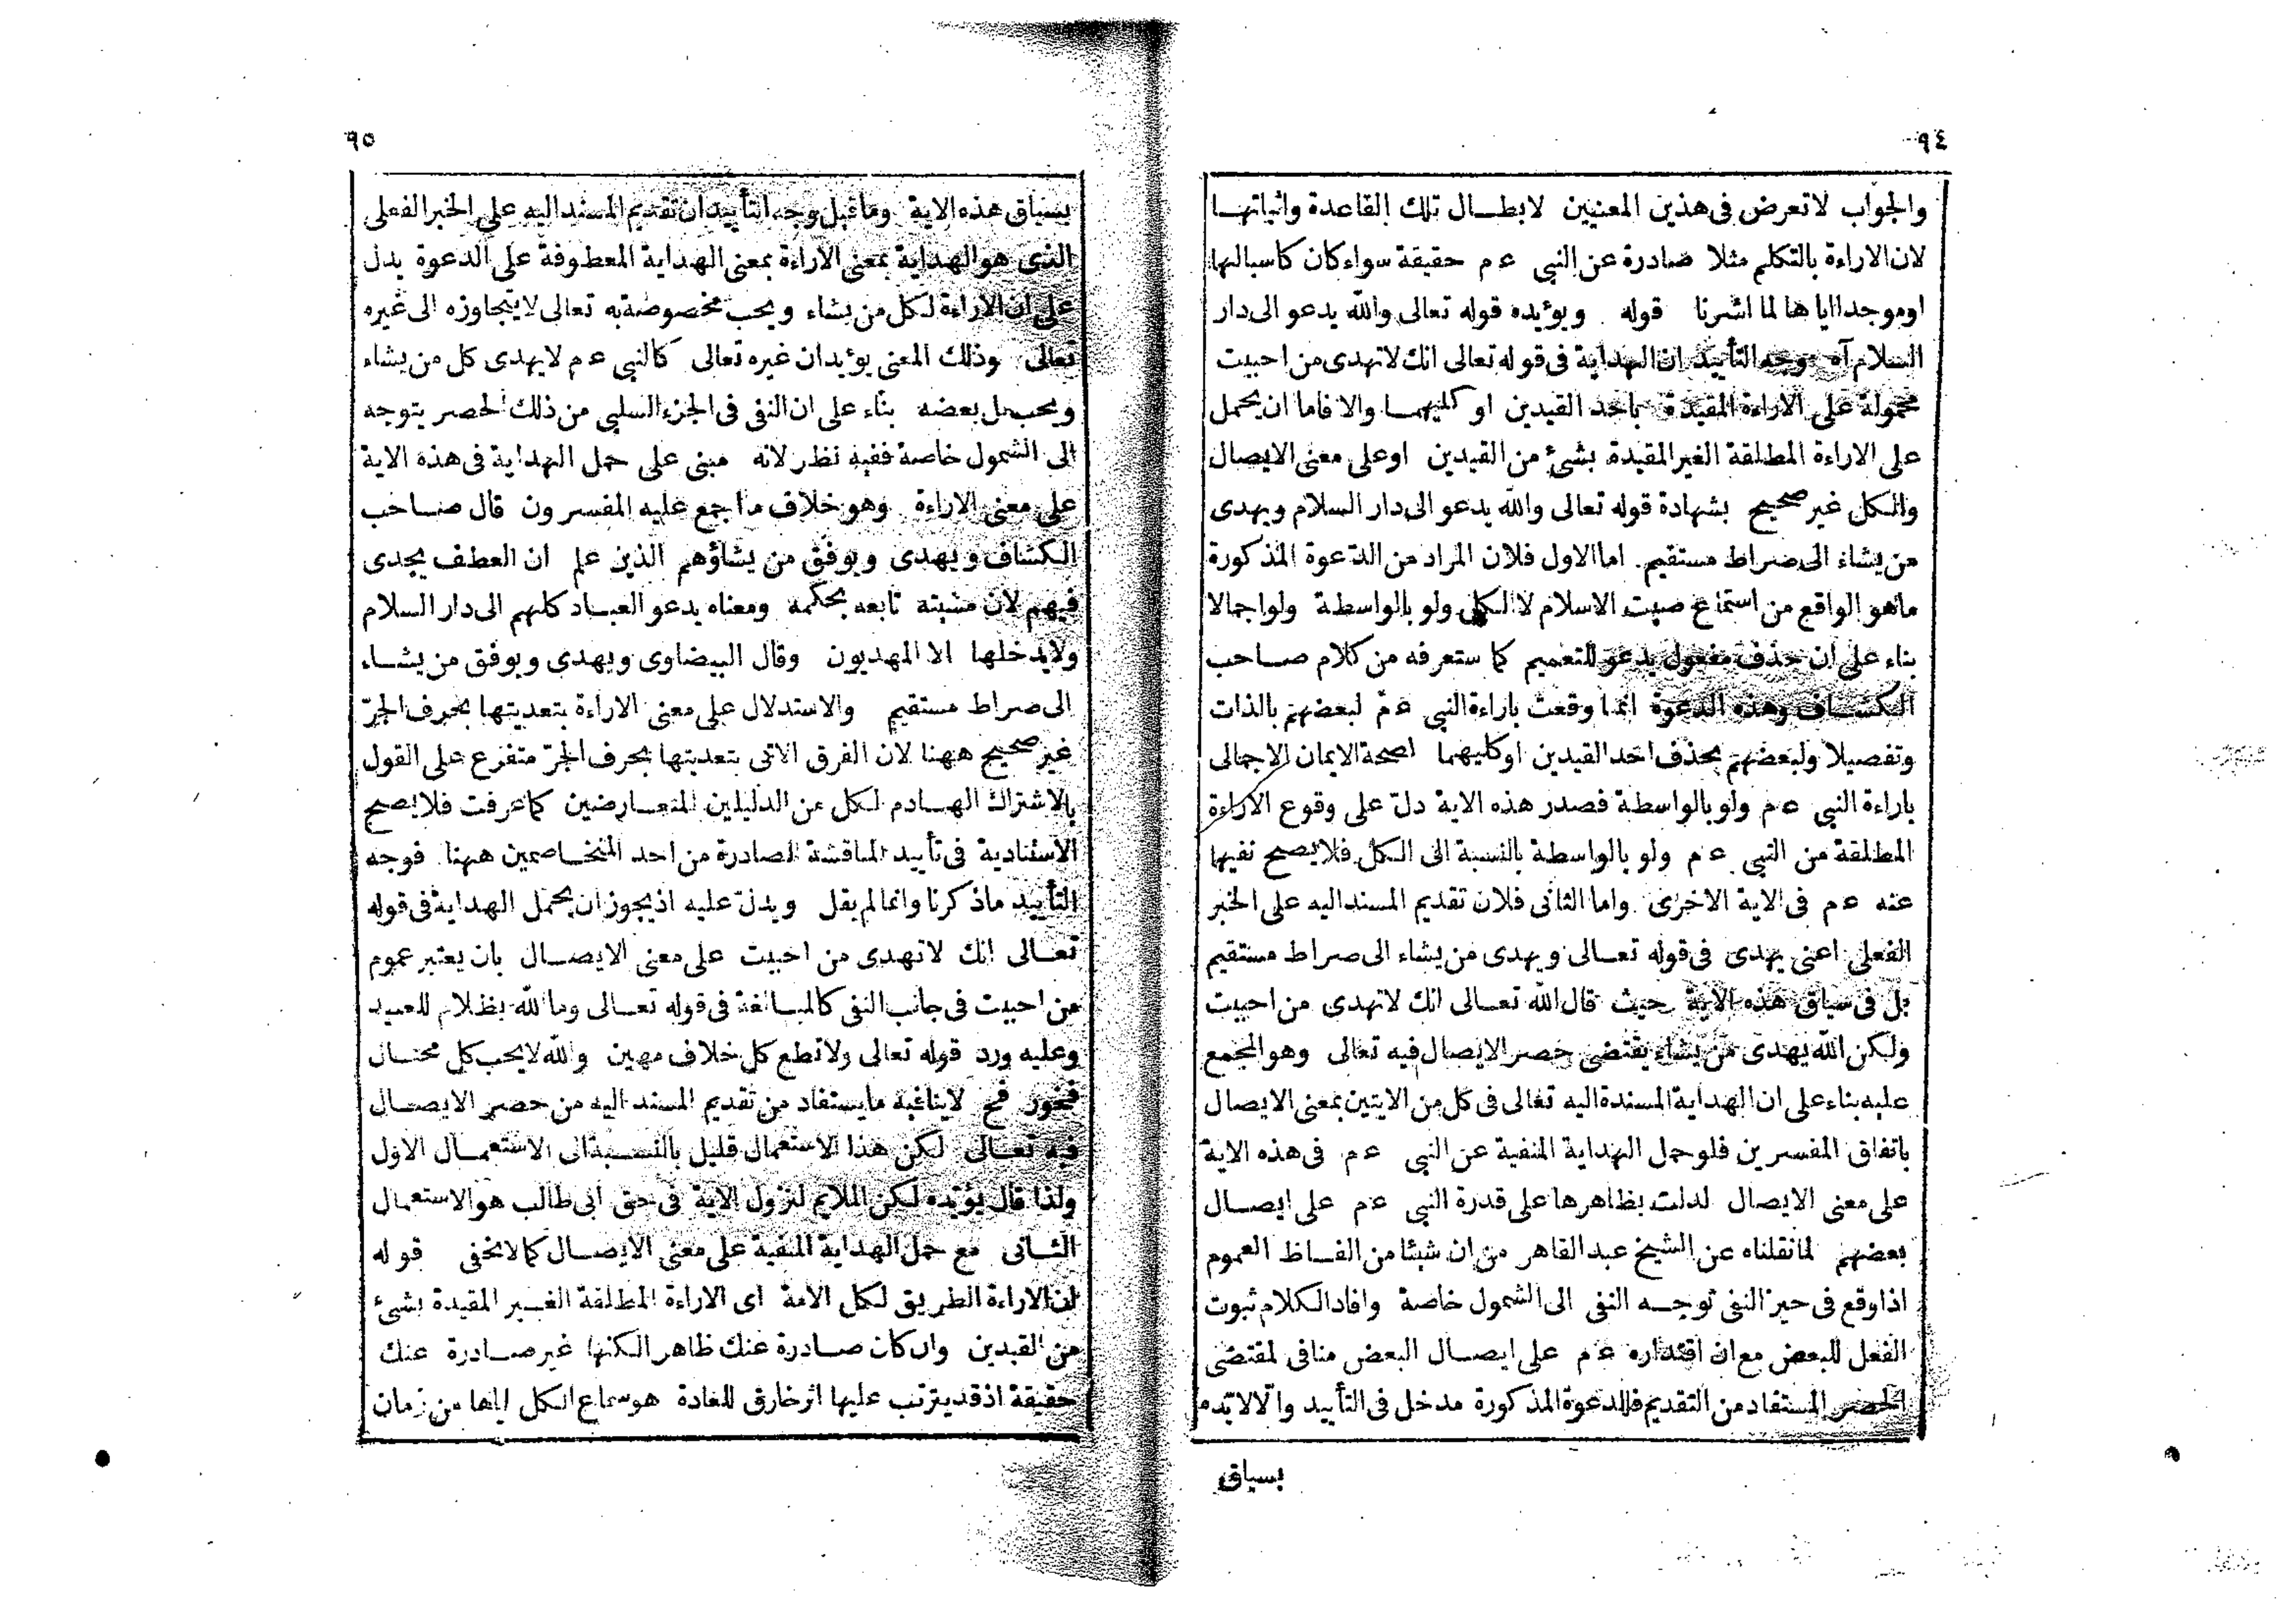 ٩٤
والجواب لا تعرض فى هذين المعنيين لابطــال تلك القاعدة واثباتهـا
لان الاراءة بالتكلم مثلا صادرة عن النبى عم حقيقة سواء كان كاسبا لها
اوموجدا اياها لما اشرنا قوله ويؤيده قوله تعالى والله يدعو الى دار
السلام آه وجه التأييد ان الهداية فى قوله تعالى انك لاتهدى من احببت
محمولة على الاراءة المقيدة باحد القيدين او كليهمـا والا فاما ان يحمل
على الاراءة المطلقة الغير المقيدة بشئ من القيدين اوعلى معنى الايصال
والكل غير صحيح بشهادة قوله تعالى والله يدعو الى دار السلام ويهدى
من يشاء الى صراط مستقيم. اما الاول فلان المراد من الدعوة المذكورة
ماهو الواقع من استماع صيت الاسلام لا الكلى ولو بالواسطة ولو اجمالا
بناء على ان حذف مفعول يدعو للتعميم كما ستعرفه من كلام صـاحب
الكشـاف وهذه الدعوة انما وقعت باراءة النبى عم لبعضهم بالذات
وتفصيلا ولبعضهم بحذف احد القيدين اوكليهما لصحة الايمان الاجمالى
باراءة النبى عم ولو بالواسطة فصدر هذه الاية دل على وقوع الاراءة
المطلقة من النبى عم ولو بالواسطة بالنسبة الى الكل فلا يصح نفيها
عنه عم فى الاية الاخرى واما الثانى فلان تقديم المسند اليه على الخبر
الفعلى اعنى يهدى فى قوله تعـالى ويهدى من يشاء الى صراط مستقيم
بل فى سياق هذه الاية حيث قال الله تعـالى انك لاتهدى من احببت
ولكن الله يهدى من يشاء يقتضى حصر الايصال فيه تعالى وهو المجمع
عليه بناء على ان الهداية المسندة اليه تعالى فى كل من الايتين بمعنى الايصال
باتفاق المفسرين فلو حمل الهداية المنفية عن النبى عم فى هذه الاية
على معنى الايصال لدلت بظاهرها على قدرة النبى عم على ايصـال
بعضهم لما نقلناه عن الشيخ عبد القاهر من ان شيئا من الفـاظ العموم
اذا وقع فى حيز النفى توجـه النفى الى الشمول خاصة وافاد الكلام ثبوت
الفعل للبعض مع ان اقتداره عم على ايصـال البعض منافى لمقتضى
الحصر المستفاد من التقديم فللدعوة المذكورة مدخل فى التأييد والا لايده
بسياق
٩٥
بسياق هذه الاية وما قيل وجه التأييد ان تقديم المسند اليه على الخبر الفعلى
الذى هو الهداية بمعنى الاراءة بمعنى الهداية المعطوفة على الدعوة يدل
على ان الاراءة لكل من يشاء ويحب مخصوصة به تعالى لا يتجاوزه الى غيره
تعالى وذلك المعنى يؤيد ان غيره تعالى كالنبى عم لايهدى كل من يشاء
ويحب بل بعضه بناء على ان النفى فى الجزء السلبى من ذلك الحصر يتوجه
الى الشمول خاصة ففيه نظر لانه مبنى على حمل الهداية فى هذه الاية
على معنى الاراءة وهو خلاف ما اجمع عليه المفسرون قال صـاحب
الكشاف ويهدى ويوفق من يشاؤهم الذين علم ان العطف يجدى
فيهم لان مشيته تابعه بحكمه ومعناه يدعو العبـاد كلهم الى دار السلام
ولايدخلها الا المهديون وقال البيضاوى ويهدى ويوفق من يشـاء
الى صراط مستقيم والاستدلال على معنى الاراءة بتعديتها بحرف الجرّ
غير صحيح ههنا لان الفرق الاتى بتعديتها بحرف الجرّ متفرع على القول
بالاشتراك الهـادم لكل من الدليلين المتعـارضين كما عرفت فلا يصح
الاستنادية فى تأييد المناقشة الصادرة من احد المتخـاصمين ههنا. فوجه
التأييد ماذكرنا وانما لم يقل ويدل عليه اذ يجوز ان يحمل الهداية فى قوله
تعـالى انك لاتهدى من احببت على معنى الايصـال بان يعتبر عموم
من احببت فى جانب النفى كالمبـالغة فى قوله تعـالى وما الله بظلام للعبيد
وعليه ورد قوله تعالى ولا تطع كل حلاف مهين والله لايحب كل مختـال
فخور فح لاينافيه مايستفاد من تقديم المسند اليه من حصر الايصـال
فيه تعـالى لكن هذا الاستعمال قليل بالنسـبة الى الاستعمـال الاول
ولذا قال يؤيده لكن الملايم لنزول الاية فى حق ابى طالب هو الاستعمال
الثـانى مع حمل الهداية المنفية على معنى الايصـال كما لايخفى قوله
لان الاراءة الطريق لكل الامة اى الاراءة المطلقة الغـير المقيدة بشئ
من القيدين وان كان صـادرة عنك ظاهرا لكنها غير صـادرة عنك
حقيقة اذ قد يترتب عليها اثر خارق للعادة هو سماع الكل اياها من زمان